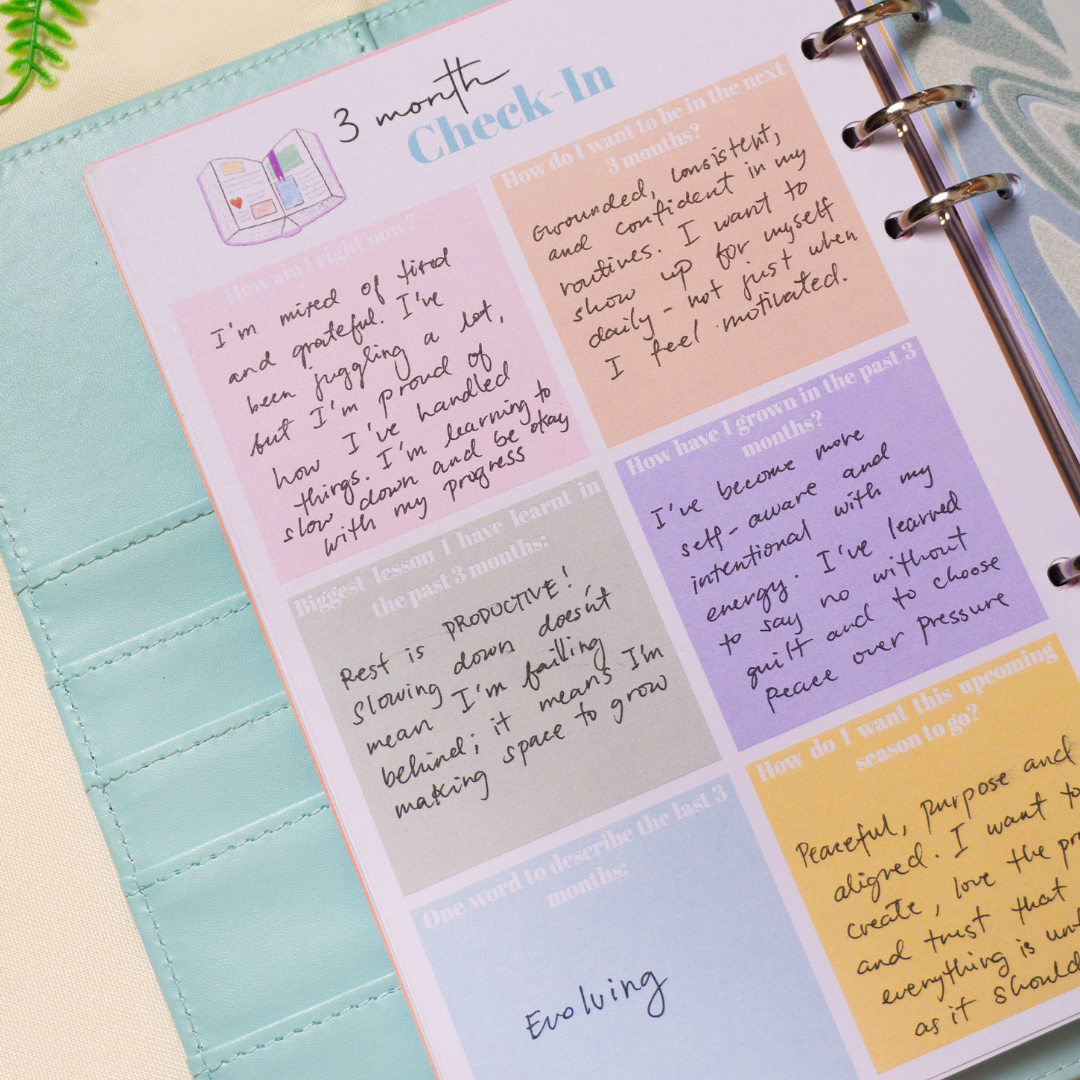 3 month
Check-In
How am I right now?
I'm mixed of tired
and grateful. I've
been juggling a lot,
but I'm proud of
how I've handled
things. I'm learning to
slow down and be okay
with my progress
How do I want to be in the next
3 months?
Grounded, consistent,
and confident in my
routines. I want to
show up for myself
daily - not just when
I feel motivated.
Biggest lesson I have learnt in
the past 3 months:
Rest is PRODUCTIVE!
Slowing down doesn't
mean I'm failling
behind; it means I'm
making space to grow
How have I grown in the past 3
months?
I've become more
self-aware and
intentional with my
energy. I've learned
to say no without
guilt and to choose
peace over pressure
One word to describe the last 3
months:
Evolving
How do I want this upcoming
season to go?
Peaceful, purpose and
aligned. I want to
create, love the
and trust that
everything is
as it should